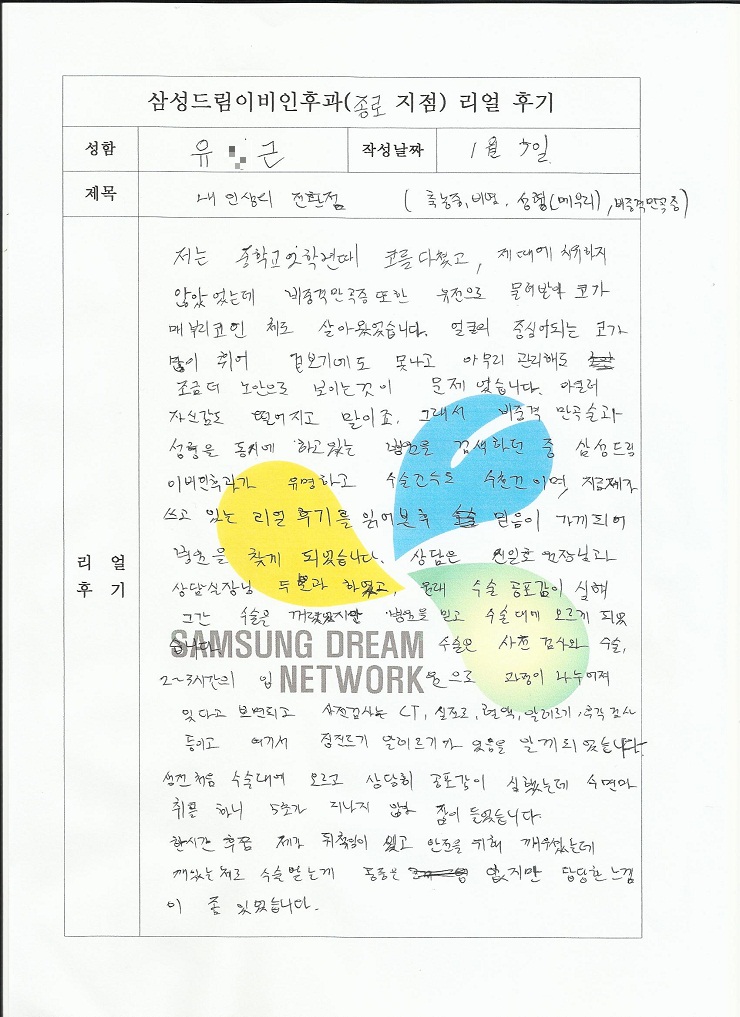 삼성드림이비인후과(종로 지점) 리얼 후기
성함 유 근 작성날짜 1월 5일
제목 내 인생의 전환점 (축농증, 비염, 성형(메우리), 비중격만곡증)
저는 중학교 2학년때 코를 다쳤고, 제때에 치유하지
않았었는데 비중격만곡증 또한 유전으로 물려받아 코가
매부리코인 체로 살아왔었습니다. 얼굴의 중심이되는 코가
많이 휘어 겉보기에도 못나고 아무리 관리해도
조금더 노안으로 보이는것이 문제였습니다. 아울러
자신감도 떨어지고 말이죠. 그래서 비중격 만곡술과
성형을 동시에 하고있는 병원를 검색하던 중 삼성드림
이비인후과가 유명하고 수술건수도 수천건 이며, 치료제가
쓰고 있는 리얼 후기를 읽어본 후 믿음이 가게되어
병원을 찾게 되었습니다. 상담은 원장님과
상담실장님 두분과 하였고, 원래 수술 공포감이 심해
그간 수술은 꺼렸었지만 병원을 믿고 수술대에 오르게 되었
습니다. 수술은 사전 검사와 수술,
2~3시간의 입원으로 과정이 나누어져
있다고 보면되고 사전검사는 CT, 심전도, 혈액, 알레르기, 후각검사
등이고 여기서 집진드기 알레르기가 있음을 알게되었습니다.
생전처음 수술대에 오르고 상당히 공포감이 심했는데 수면마
취를 하니 5초가 지나지 않아 잠이 들었습니다.
한시간 후쯤 제가 뒤척임이 있고 안전을 위해 깨우셨는데
깨있는체로 수술받는게 통증은 없지만 답답한 느낌
이 좀 있었습니다.
리얼
후기
SAMSUNG DREAM
NETWORK